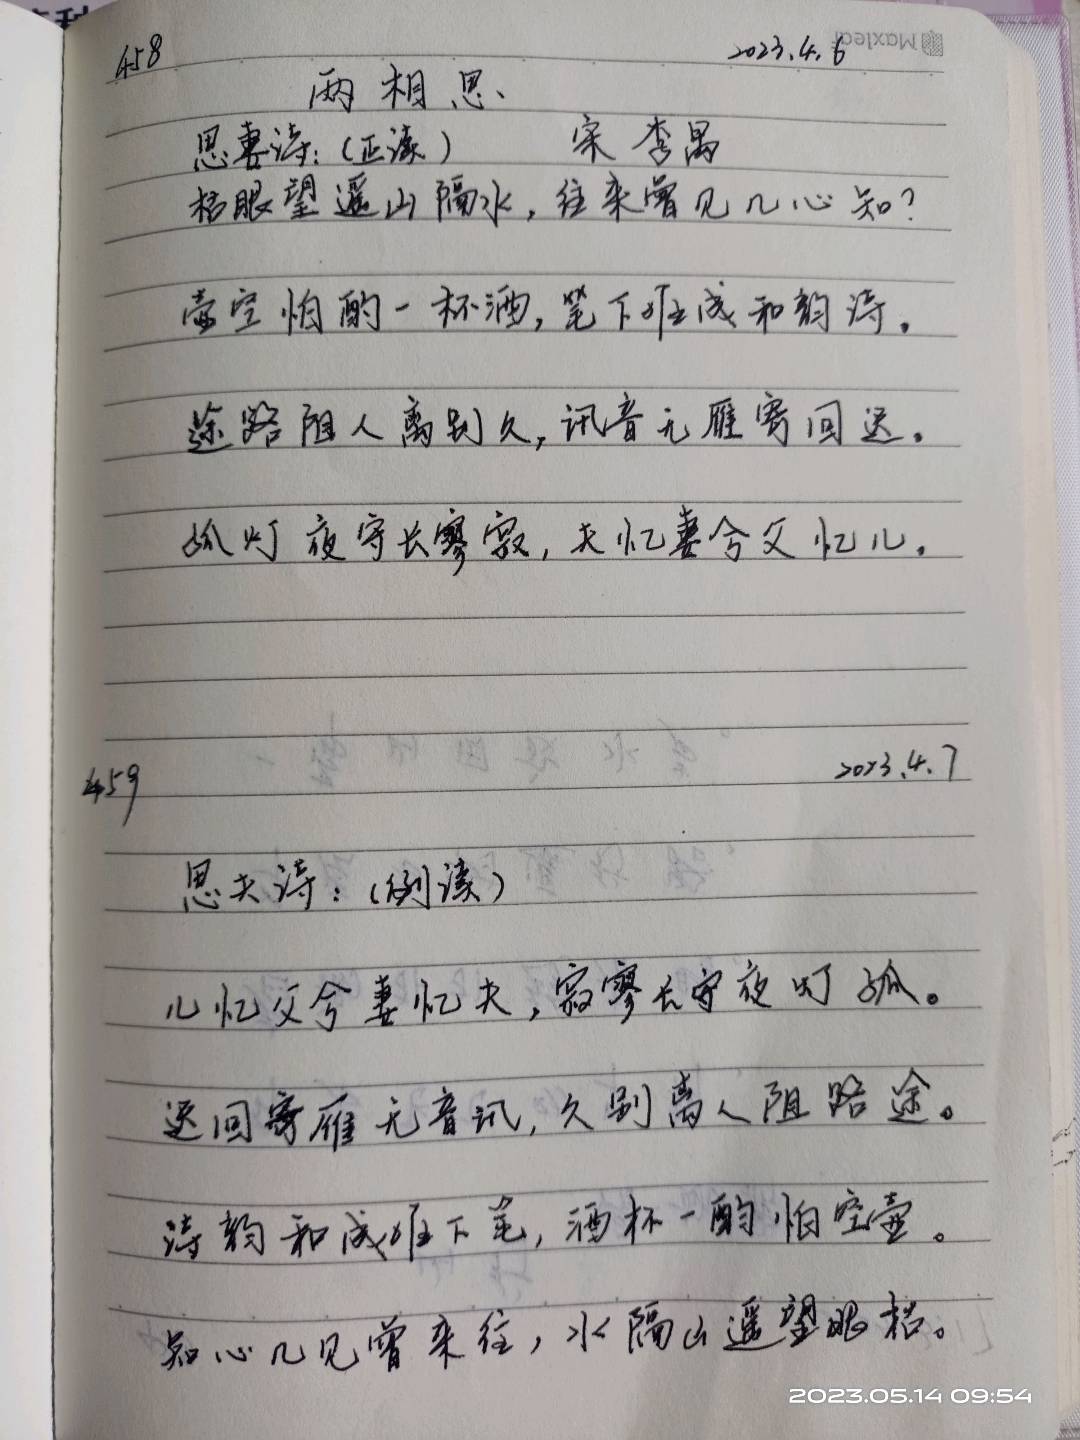 458 2023.4.6
两相思、
思妻诗:(正读) 宋 李禺
枯眼望遥山隔水,往来曾见几心知?
壶空怕酌一杯酒,笔下难成和韵诗。
途路阻人离别久,讯音无雁寄回迟。
孤灯夜守长寥寂,夫忆妻兮父忆儿。
459 2023.4.7
思夫诗:(倒读)
儿忆父兮妻忆夫,寂寥长守夜灯孤。
迟回寄雁无音讯,久别离人阻路途。
诗韵和成难下笔,酒杯一酌怕空壶。
知心几见曾来往,水隔山遥望眼枯。
Maxleaf
2023.05.14 09:54